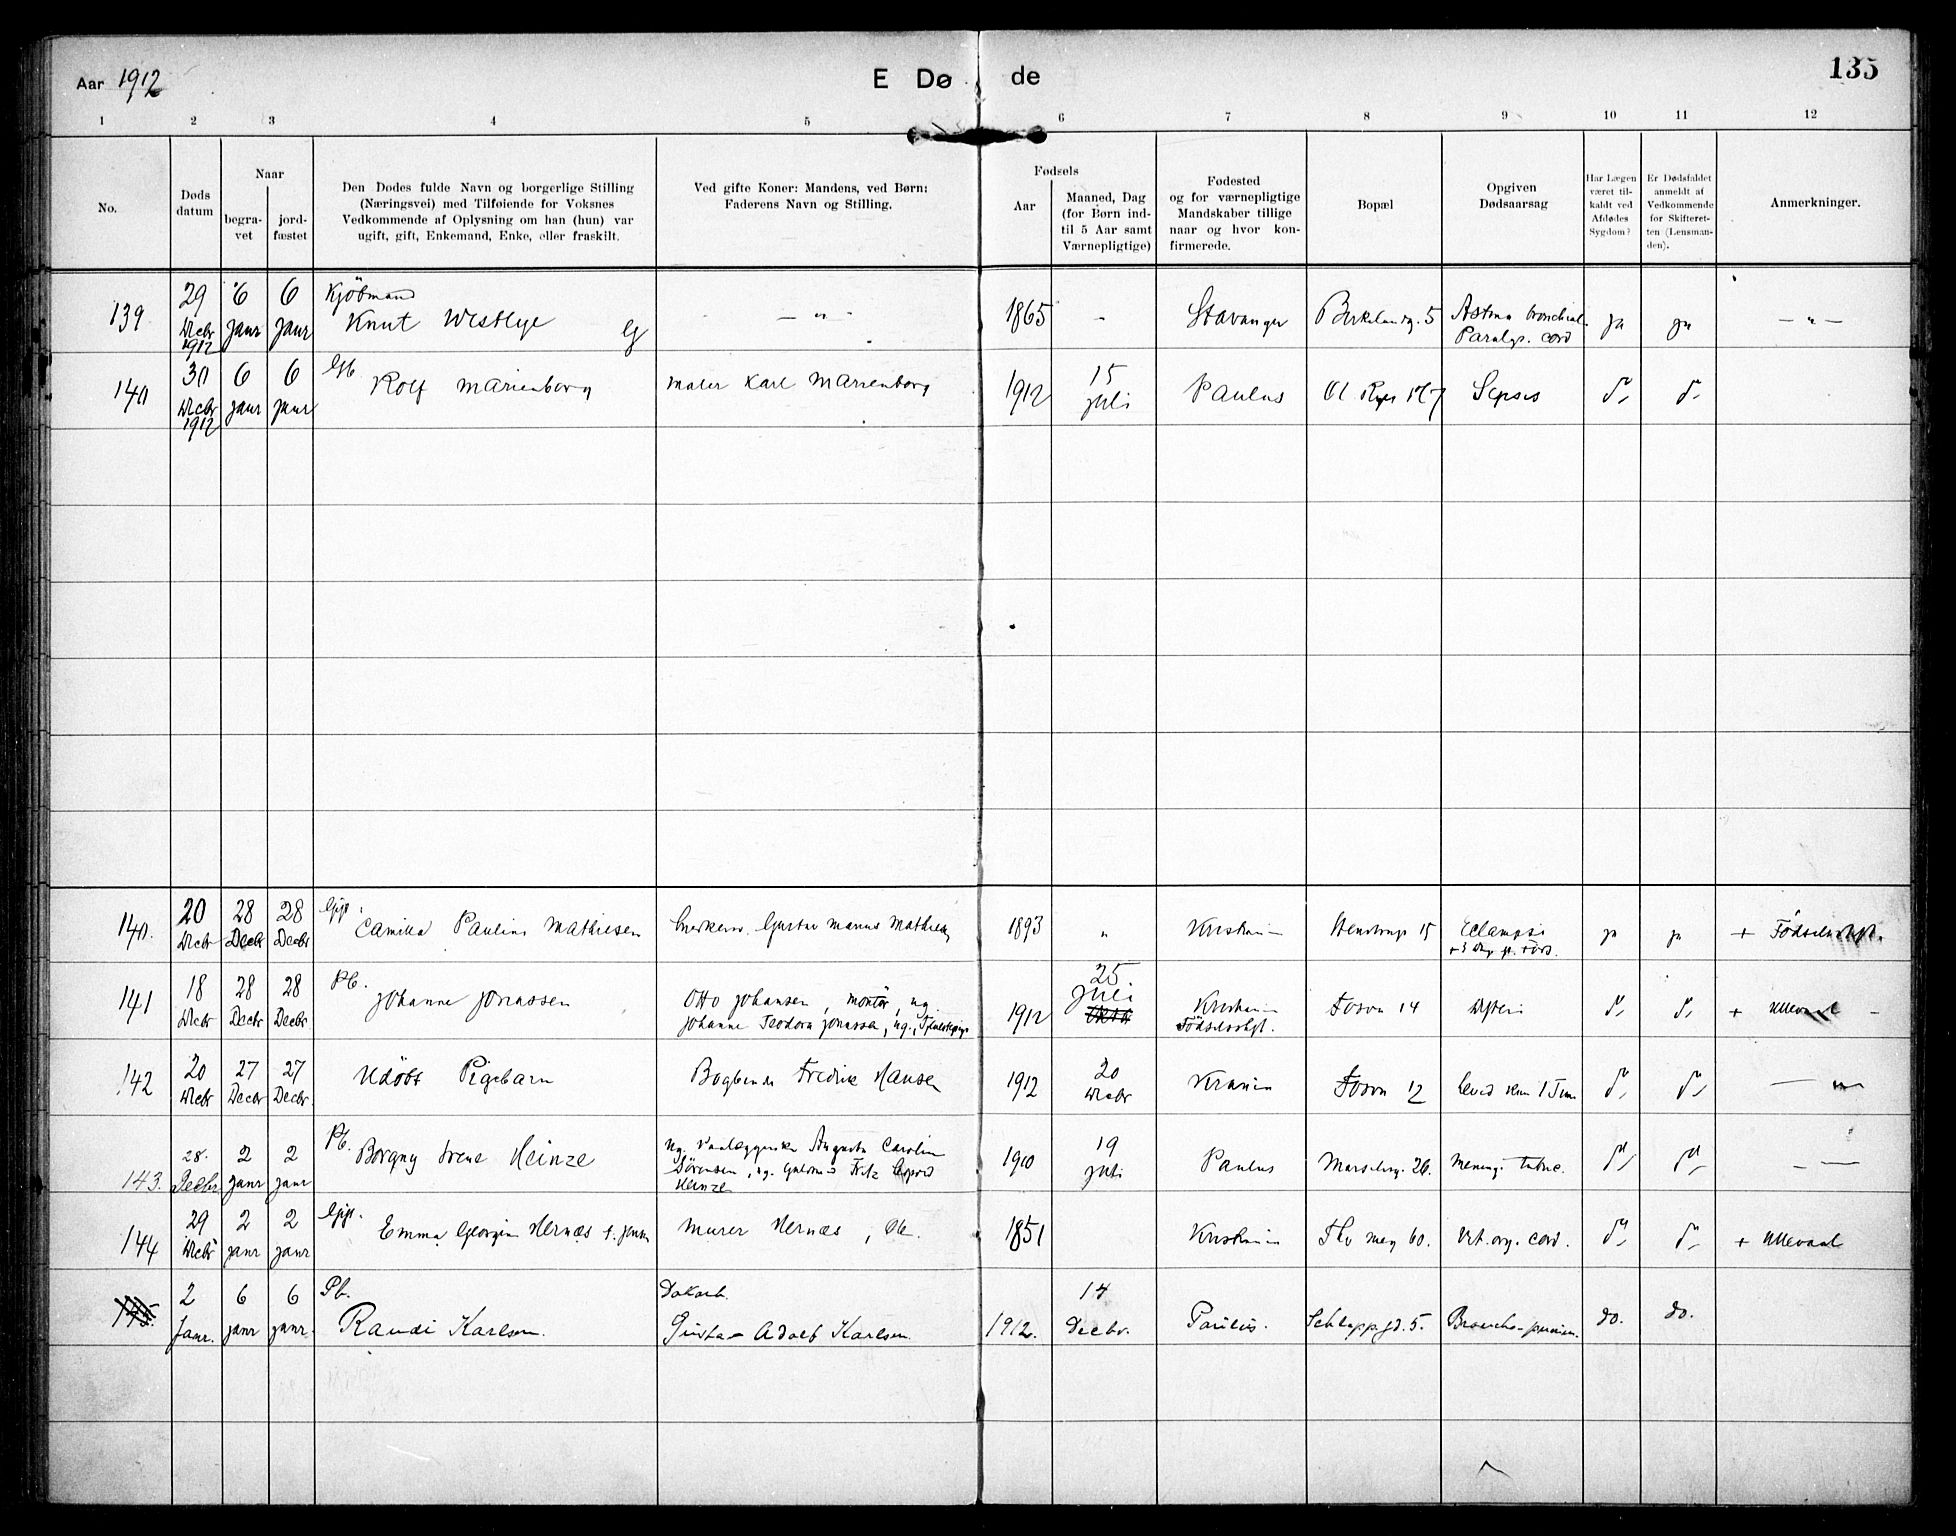 Aar 1912 E Dø de 135
1 2 3 4 5 6 7 8 9 10 11 12
No.
Døds
datum
Naar
begra-
vet
jord-
fæstet
Den Dødes fulde Navn og borgerlige Stilling
(Næringsvei) med Tilføiende for Voksnes
Vedkommende af Oplysning om han (hun) var
ugift, gift, Enkemand, Enke, eller fraskilt.
Ved gifte Koner: Mandens, ved Børn:
Faderens Navn og Stilling.
Fødsels
Aar
Maaned, Dag
(for Børn ind-
til 5 Aar samt
Værnepligtige)
Fødested
og for værnepligtige
Mandskaber tillige
naar og hvor kon-
firmerede.
Bopæl
Opgiven
Dødsaarsag
Har Lægen
været til-
kaldt ved
Afdødes
Sygdom?
Er Dødsfaldet
anmeldt af
Vedkommende
for Skifteret-
ten (Lensman-
den).
Anmerkninger.
139 29 Decbr 1912 6 Janr 6 Janr Kjöbmand
Knut Westlye G — " — 1865 - Stavanger Birkelandg. 5 Astma bronchial.
Paralys. cord ja ja — " —
140 30 Decbr 1912 6 Janr 6 Janr Gb. Rolf Marienborg Maler Karl Marienborg 1912 15 Juli Paulus Ol. Ryes Pl 7 Sepsis do do
140. 20 Decbr 28 Decbr 28 Decbr Gift Camilla Pauline Mathiesen Gustav Marius Mathies 1893 " Kristiania 15 Eclampsi
ja ja + Födselsstift.
141 18 Decbr 28 Decbr 28 Decbr Pb. Johanne Jonassen Otto Johansen, montör, ug.
Johanne Teodora Jonassen, ug., 1912 25 Juli Kristiania
Födselsstift. Fosvn 14 do do + Ullevaal -
142 20 Decbr 27 Decbr 27 Decbr Udöbt Pigebarn Bogbinder Fredrik Hansen 1912 20 Decbr Krania Fosvn 12 do do — " —
143. 28. Decbr 2 Janr 2 Janr Pb. Borgny Irene Heinze ug. Augusta Caroline
Sörensen, ug. Fritz
Heinze 1910 19 Juli Paulus Marselisg. 26. Mening. tuberc. do do — —
144 29 Decbr 2 Janr 2 Janr Gift. Emma Georgine Hernæs f. Jensen Murer Hernæs, 1851 Kristiania Thv Mey 60. Vit. org. cord. do do + Ullevaal
145. 2 Janr. 6 Janr 6 Janr. Pb.
Randi Karlsen. Gustav Adolf Karlsen. 1912. 14 Decbr. Paulus. Schleppgd. 5. Broncho-pneum. do. do.